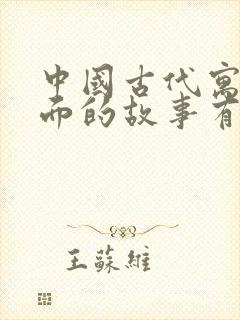 中國古代寓
而的故事有
王蘇維